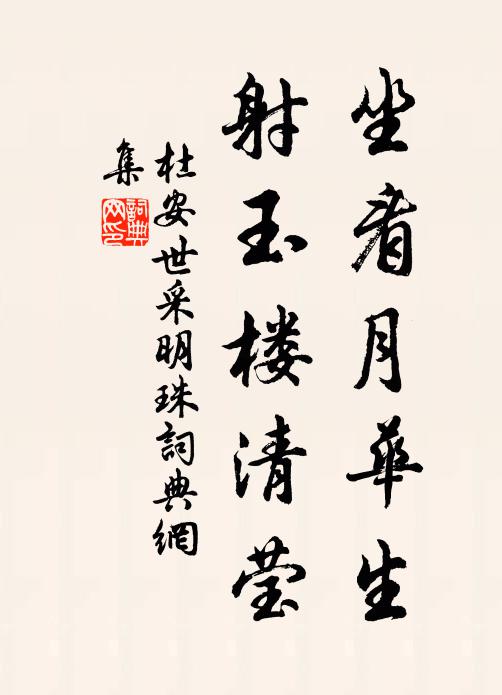 坐看月華生
射玉楼清莹
杜安世采明珠詞典網
集
詞典网印